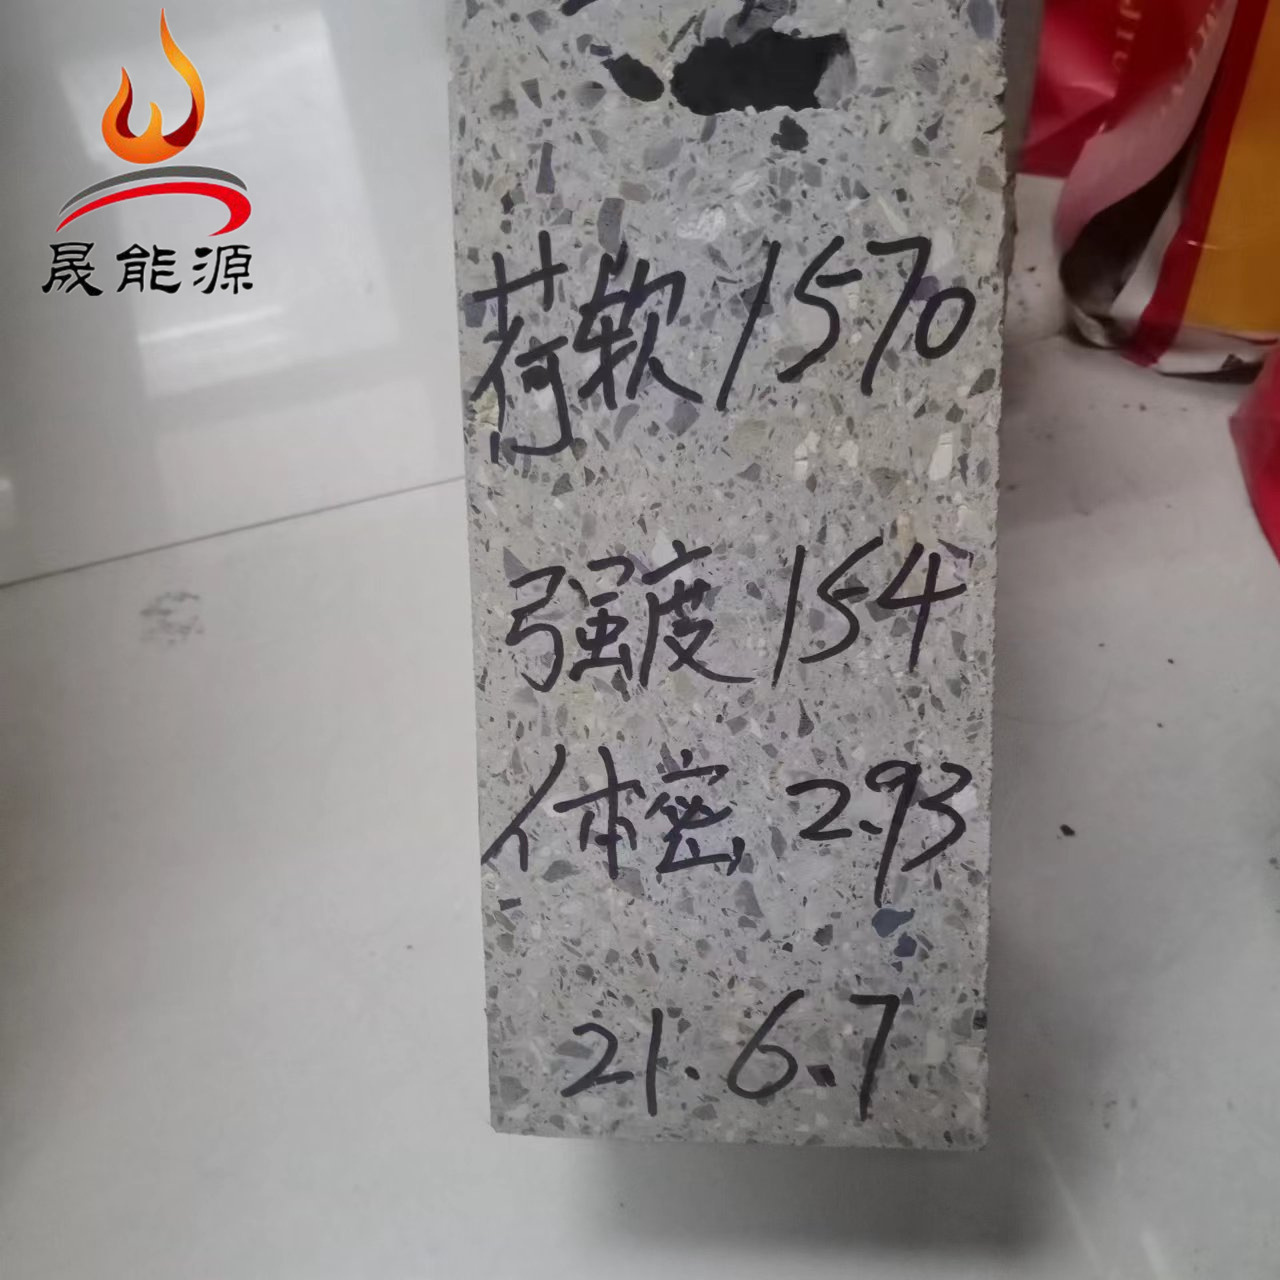 晟能源
荷软1570
强度154
体密2.93
21.6.7